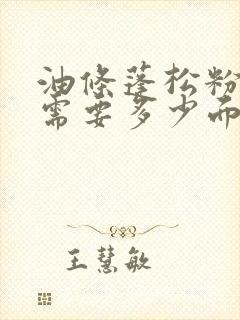 油條蓬松粉
需要多少而
王慧敏